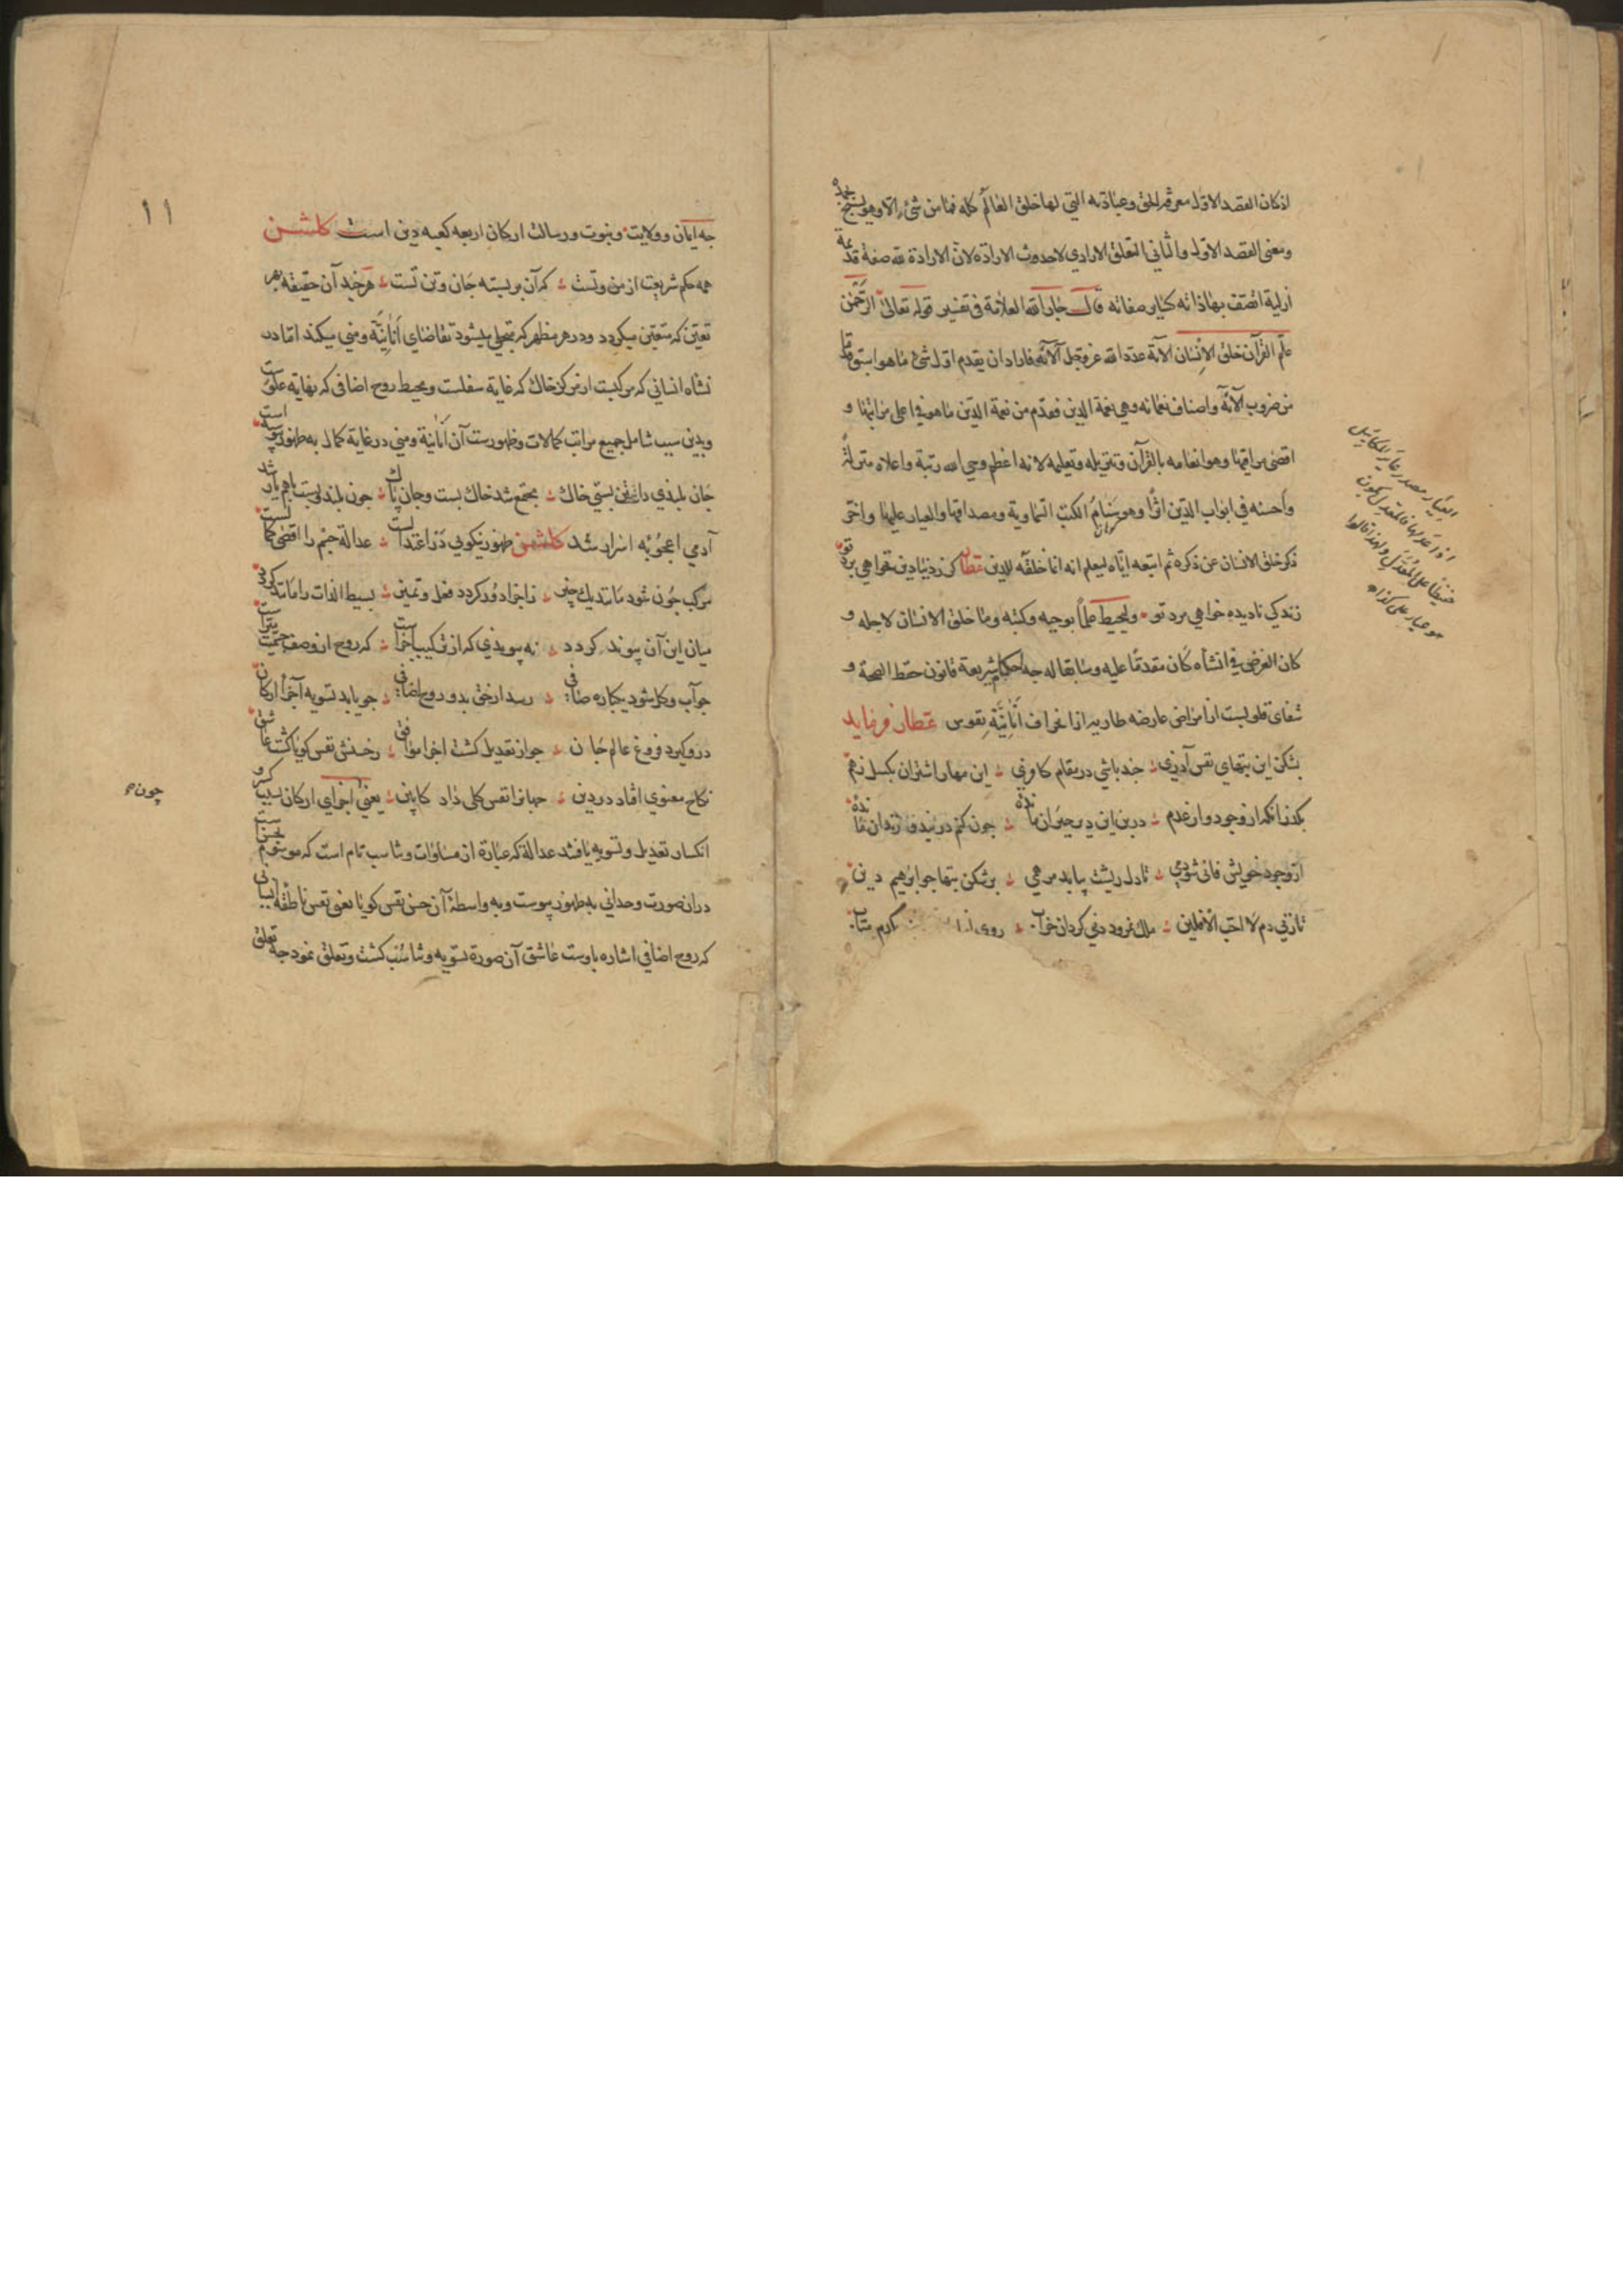 اذ كان القصد الاول معرفة الحق وعبادته التي لها خلق العالم كله فما من شيء الا وهو يسبح بحمده
ومعنى القصد الاول والثاني التعلق الارادي لا حدوث الارادة لان الارادة لله صفة قديمة
ازلية اتصف بها ذاته كسائر صفاته قال جار الله العلامة في تفسير قوله تعالى الرحمن
علم القرآن خلق الانسان الآية عدد الله عز وجل آلائه فاراد ان يقدم اول شئ ما هو اسبق قدما
من ضروب آلائه واصناف نعمائه وهي نعمة الدين فقدم من نعمة الدين ما هو في اعلى مراتبها و
اقصى مراقيها وهو انعامه بالقرآن وتنزيله وتعليمه لانه اعظم وحي الله رتبة واعلاه منزلة
واحسنه في ابواب الدين اثرا وهو سنام الكتب السماوية ومصداقها والعيار عليها واخر
ذكر خلق الانسان عن ذكره ثم اتبعه اياه ليعلم انه انما خلقه للدين عطار كر ز دنيا دين نخواهي برد تو
زندكي ناديده خواهي مرد تو وليحيط علما بوحيه وكتبه وما خلق الانسان لاجله و
كان الغرض في انشاه كان مقدما عليه وسابقا له جه احكام شريعة قانون حفظ الصحة و
شفاي قلوبست از امراض عارضه طاريه از انحراف انانية نفوس عطار فرمايد
بشكن اين بتهاي نفس آذري جند باشي در مقام كافري اين مهار اشتران بكسل زهم
بكذر انكه از وجود واز عدم درين اين دير حيران مانده جون كنم در بند وزندان مانده
از وجود خويش فاني شو دمي تا دل ريشت بيابد مرهمي برشكن بتها جو ابرهيم دين
تا زني دم لا احب الآفلين ملك نمرود دني كردان خراب روى كرم متاب
العيار مصدر عاير المكاييل
اذا عدلها فالمعدل يكون
ضبطا على المعدل ولهذا قالوا
هو عيار على كذا
١١
جه ايمان وولايت ونبوت ورسالت اركان اربعه كعبه دين است كلشن
همه حكم شريعت از من وتست كه آن بر بسته جان وتن تست هر جند آن حقيقة بهر
تعين كه متعين ميكردد ودر هر مظهر كه متجلى ميشود تقاضاي انانية ومني ميكند اما در
نشاه انساني كه مركبست از مركز خاك كه غاية سفلست ومحيط روح اضافي كه نهاية علوست
وبدين سبب شامل جميع مراتب كمالات وظهورست آن انانية ومني در غاية كمال به ظهور پيوسته است
جان بلندي داشت تن پستي خاك مجتمع شد خاك پست وجان پاك جون بلند وپست باهم يار شد
آدمي اعجوبه اسرار شد كلشن ظهور نيكويي در اعتدالست عدالة جسم را اقصى كمالست
مركب جون شود مانند يك چيز ز اجزا دور كردد فعل وتميز بسيط الذات را مانند كردد
ميان اين آن پيوند كردد نه پيوندي كه از تركيب اجزاست كه روح از وصف جسميت مبراست
جو آب وكل شود يكباره صافي رسد از حق بدو روح اضافي جو يابد تسويه آجزا اركان
درو كيرد فروغ عالم جان جو از تعديل كشت اجزا موافق ز حسنش نفس كويا كشت عاشق
نكاح معنوي افتاد در دين جهانرا نفس كلى داد كابين يعني اجزاي اركان بسبب كسر و
انكسار تعديل وتسويه يافتند عدالة كه عبارة از مساوات وتناسب تام است كه موسوم بحسن است
در ان صورت وحداني به ظهور پيوست وبه واسطة آن حسن نفس كويا يعنى نفس ناطقه انساني
كه روح اضافي اشاره باوست عاشق آن صورة تسويه وتناسب كشت وتعلق نمود جه تعلق
چون